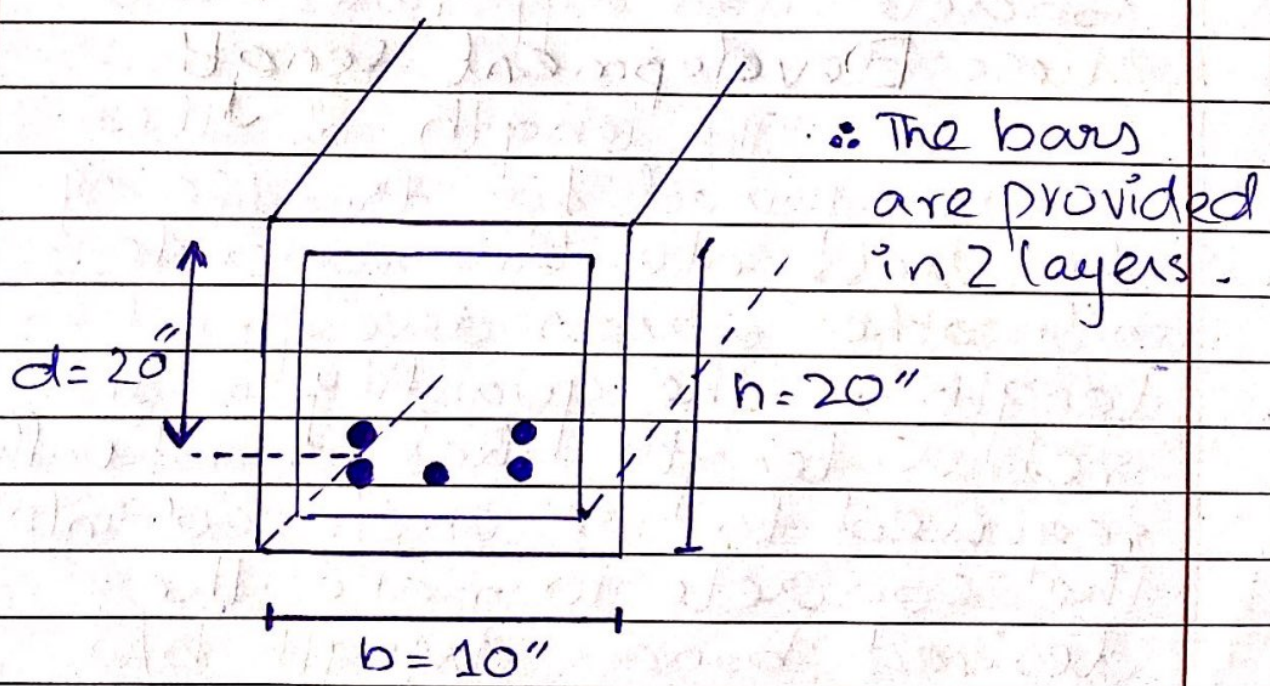 ∴ The bars
are provided
in 2 layers.
d = 20"
h = 20"
b = 10"